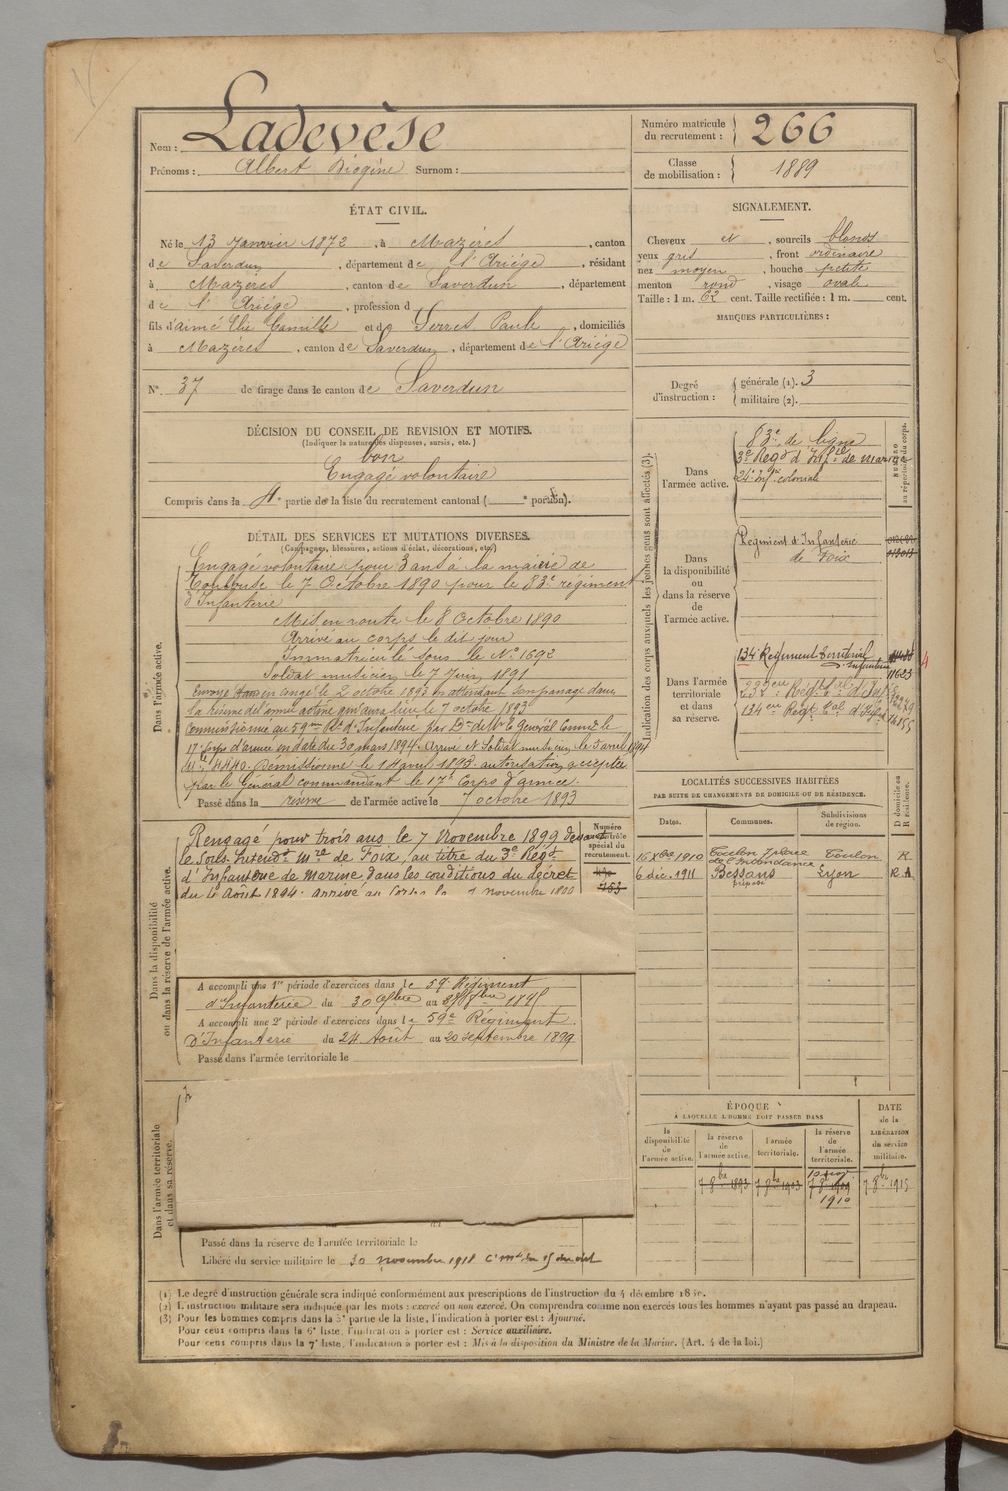 Nom : Ladevèse
Prénoms : Albert Diogène Surnom :
Numéro matricule du recrutement : 266
Classe de mobilisation : 1889
ÉTAT CIVIL.
Né le 13 Janvier 1872, à Mazères, canton
de Saverdun, département de l'Ariège, résidant
à Mazères, canton de Saverdun, département
de l'Ariège, profession d
fils d'aimé Elie Camille et de Serres Paule, domiciliés
à Mazères, canton de Saverdun, département de l'Ariège
N° 37 de tirage dans le canton de Saverdun
SIGNALEMENT.
Cheveux et, sourcils blonds
yeux gris, front ordinaire
nez moyen, bouche petite
menton rond, visage ovale
Taille : 1 m. 62 cent. Taille rectifiée : 1 m. cent.
MARQUES PARTICULIÈRES :
Degré d'instruction : générale (1). 3
militaire (2).
DÉCISION DU CONSEIL DE REVISION ET MOTIFS.
(Indiquer la nature des dispenses, sursis, etc.)
bon
Engagé volontaire
Compris dans la 4e partie de la liste du recrutement cantonal ( e portion).
DÉTAIL DES SERVICES ET MUTATIONS DIVERSES.
(Campagnes, blessures, actions d'éclat, décorations, etc.)
Dans l'armée active.
Engagé volontaire pour 3 ans à la mairie de
Toulouse le 7 Octobre 1890 pour le 83e régiment
d'Infanterie
Mis en route le 8 Octobre 1890
Arrivé au corps le dit jour
Immatriculé sous le N° 1692
Soldat musicien le 7 Juin 1891
Envoyé en congé le 2 octobre 1893 en attendant son passage dans
la réserve de l'armée active qui aura lieu le 7 octobre 1893
Commissionné au 59me Rt d'Infanterie par Don de Mr le Général Commt le
17e Corps d'armée en date du 30 mars 1894. Arrivé et Soldat musicien le 5 avril 1894
N° 4440. Démissionné le autorisation acceptée
par le Général commandant le 17e Corps d'armée.
Passé dans la réserve de l'armée active le 7 octobre 1893
Dans la disponibilité ou dans la réserve de l'armée active.
Numéro au contrôle spécial du recrutement.
Rengagé pour trois ans, le 7 Novembre 1899 devant
le Sous-Intendt mre de Foix, au titre du 3e Régt
d'Infanterie de Marine, dans les conditions du décret
du 4 Août 1894. arrivé au Corps le novembre 1899
A accompli une 1re période d'exercices dans le 59e Régiment
d'Infanterie du 30 au 1895
A accompli une 2e période d'exercices dans le 59e Régiment
d'Infanterie du 24 Août au 20 septembre 1899
Passé dans l'armée territoriale le
Dans l'armée territoriale et dans sa réserve.
Passé dans la réserve de l'armée territoriale le
Libéré du service militaire le 30 novembre 1918
Indication des corps auxquels les jeunes gens sont affectés (3).
NUMÉRO au répertoire du corps.
Dans l'armée active.
83e de ligne
3e Régt d'Infie de marine
24e Infie coloniale
Dans la disponibilité ou dans la réserve de l'armée active.
Régiment d'Infanterie
de Foix
Dans l'armée territoriale et dans sa réserve.
134e Régiment territorial Infanterie
11623
134eme Régt tal d'Infie
LOCALITÉS SUCCESSIVES HABITÉES
PAR SUITE DE CHANGEMENTS DE DOMICILE OU DE RÉSIDENCE.
Dates. Communes. Subdivisions de région. D domicile ou R résidence.
16 Xbre 1910 Toulon 7 place de l'Intendance Toulon R
6 déc. 1911 Bessans préposé Lyon R A
ÉPOQUE
À LAQUELLE L'HOMME DOIT PASSER DANS
la disponibilité de l'armée active.
la réserve de l'armée active.
l'armée territoriale.
la réserve de l'armée territoriale.
DATE de la LIBÉRATION du service militaire.
7 8bre 1893 7 8bre 1903 7 8 1909 7 8bre 1915
10 nov
1910
(1) Le degré d'instruction générale sera indiqué conformément aux prescriptions de l'instruction du 4 décembre
(2) L'instruction militaire sera indiquée par les mots : exercé ou non exercé. On comprendra comme non exercés tous les hommes n'ayant pas passé au drapeau.
(3) Pour les hommes compris dans la 5e partie de la liste, l'indication à porter est : Ajourné.
Pour ceux compris dans la 6e liste, l'indication à porter est : Service auxiliaire.
Pour ceux compris dans la 7e liste, l'indication à porter est : Mis à la disposition du Ministre de la Marine. (Art. 4 de la loi.)